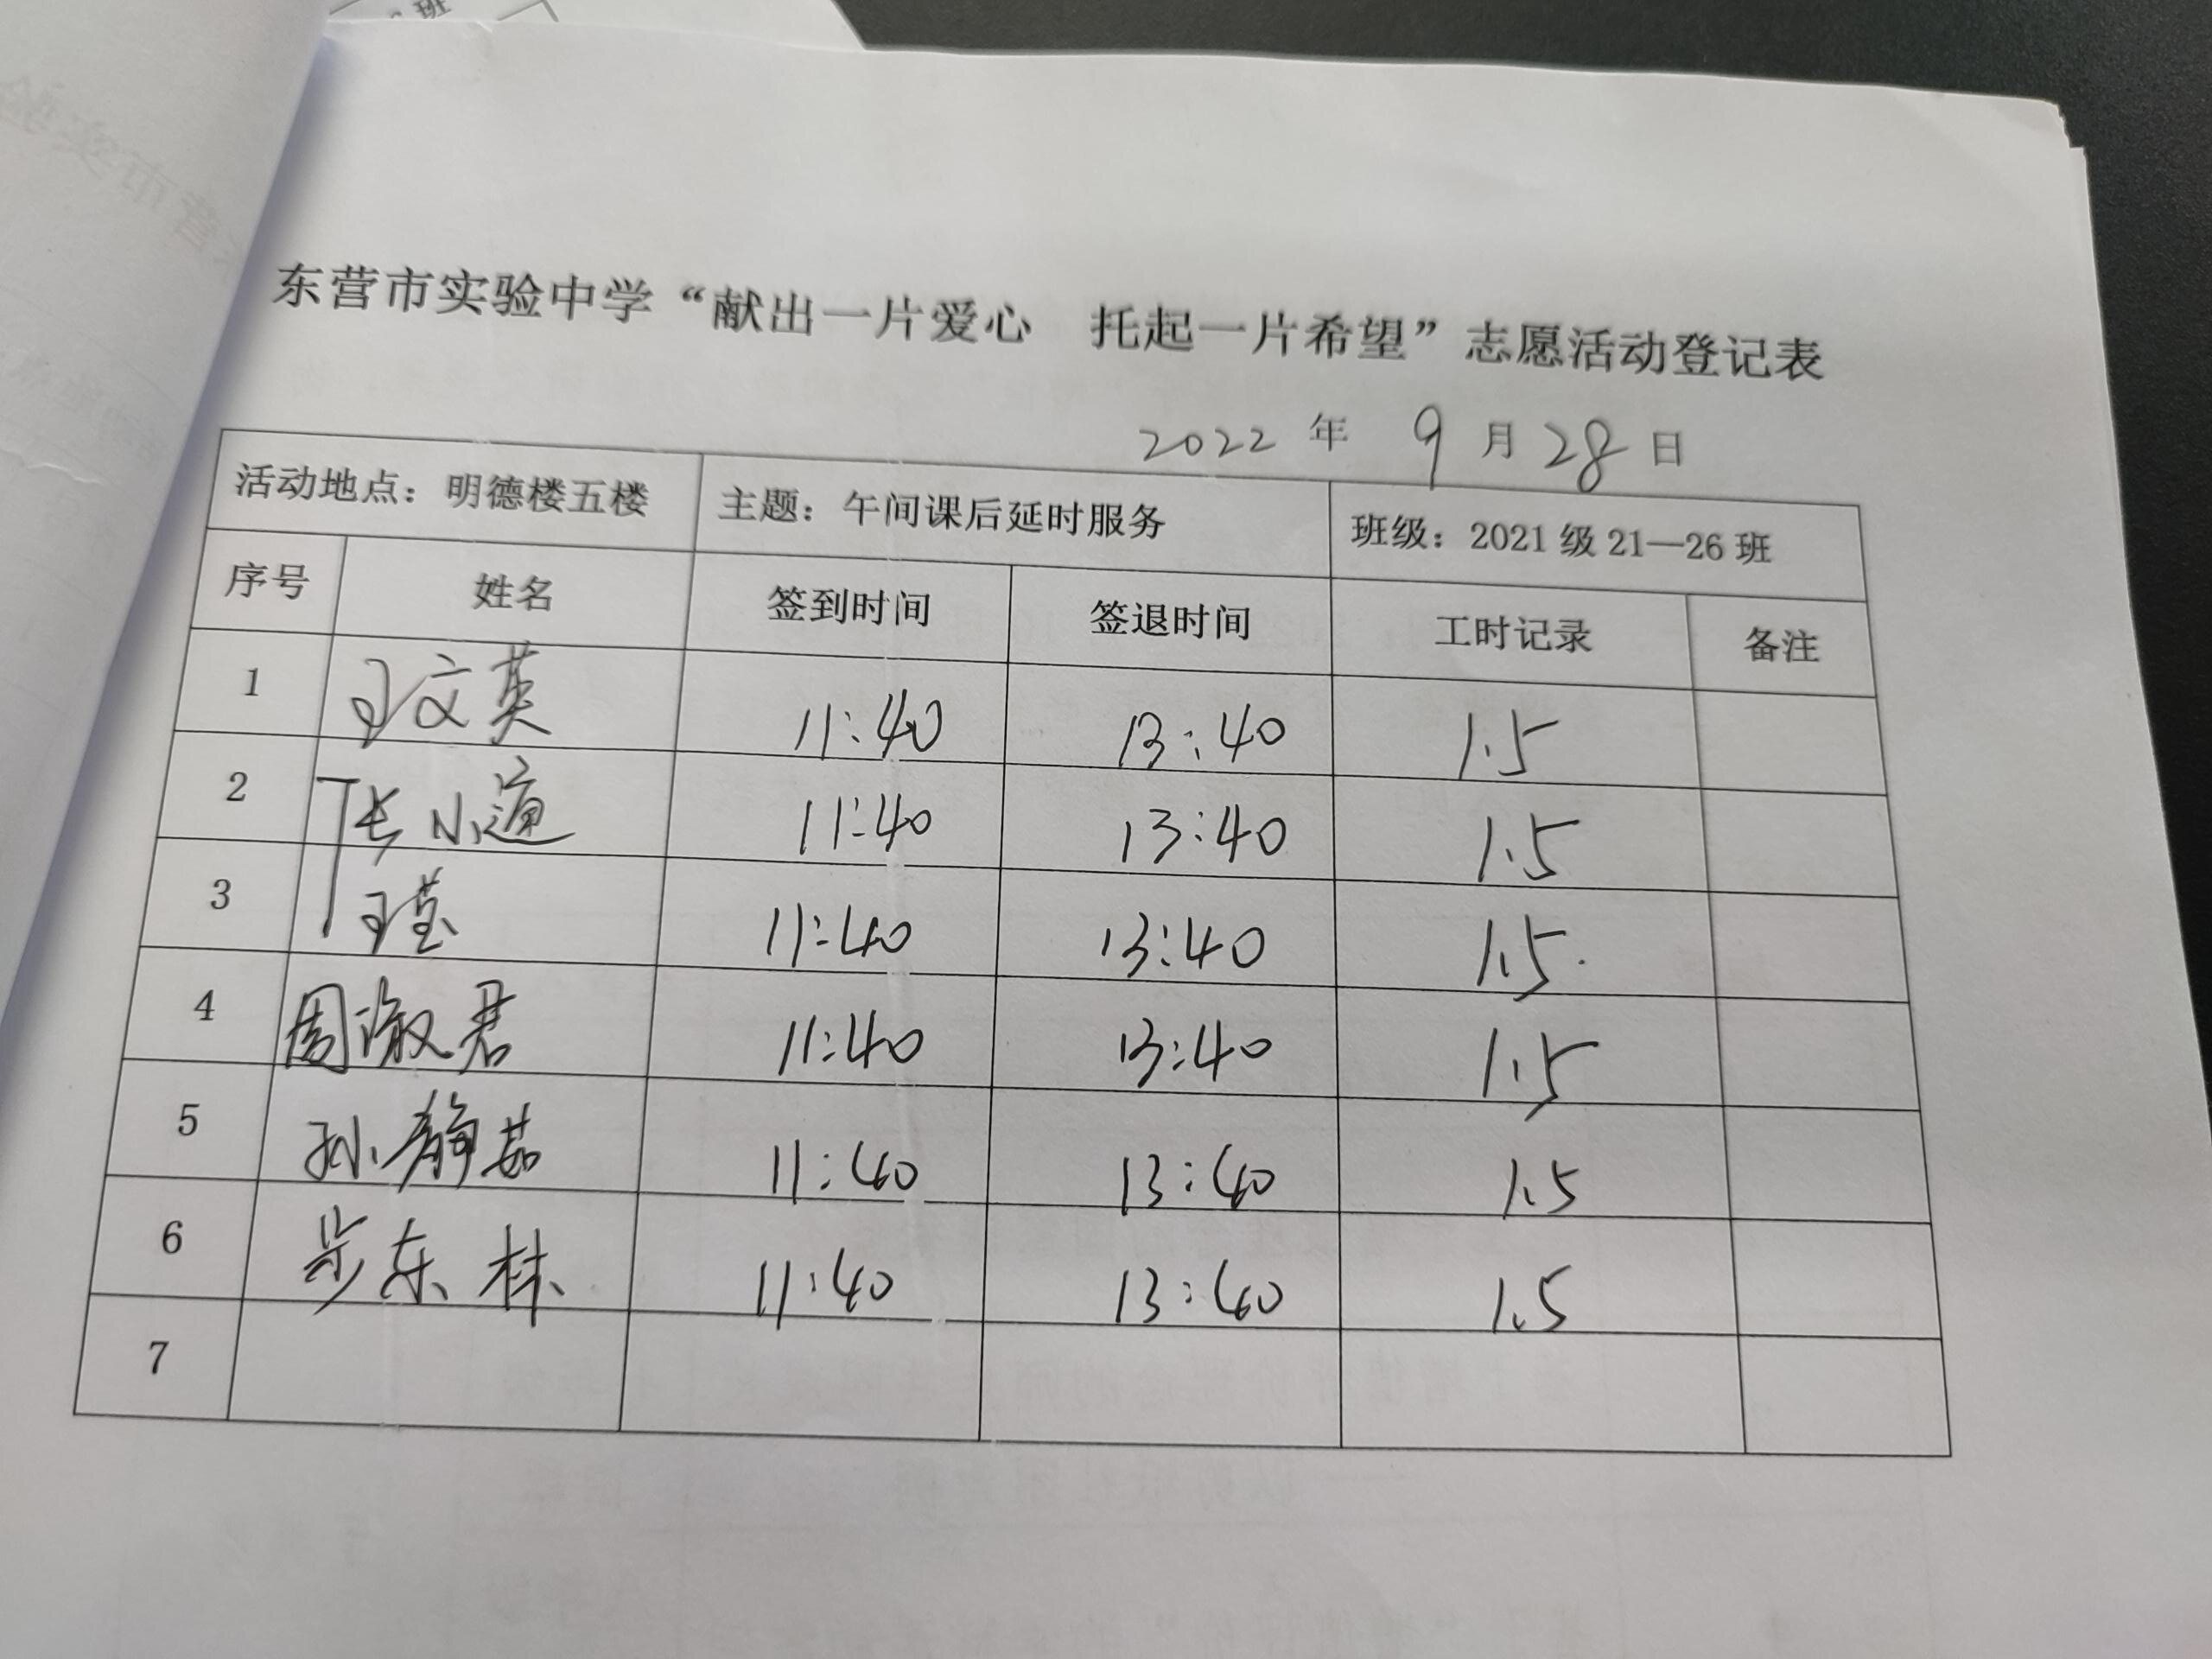 东营市实验中学“献出一片爱心 托起一片希望”志愿活动登记表
2022 年 9 月 28 日
活动地点：明德楼五楼 主题：午间课后延时服务 班级：2021级21—26班
序号 姓名 签到时间 签退时间 工时记录 备注
1 王文英 11:40 13:40 1.5
2 张小 11:40 13:40 1.5
3 王莹 11:40 13:40 1.5
4 周淑君 11:40 13:40 1.5
5 孙静茹 11:40 13:40 1.5
6 步东林 11:40 13:40 1.5
7